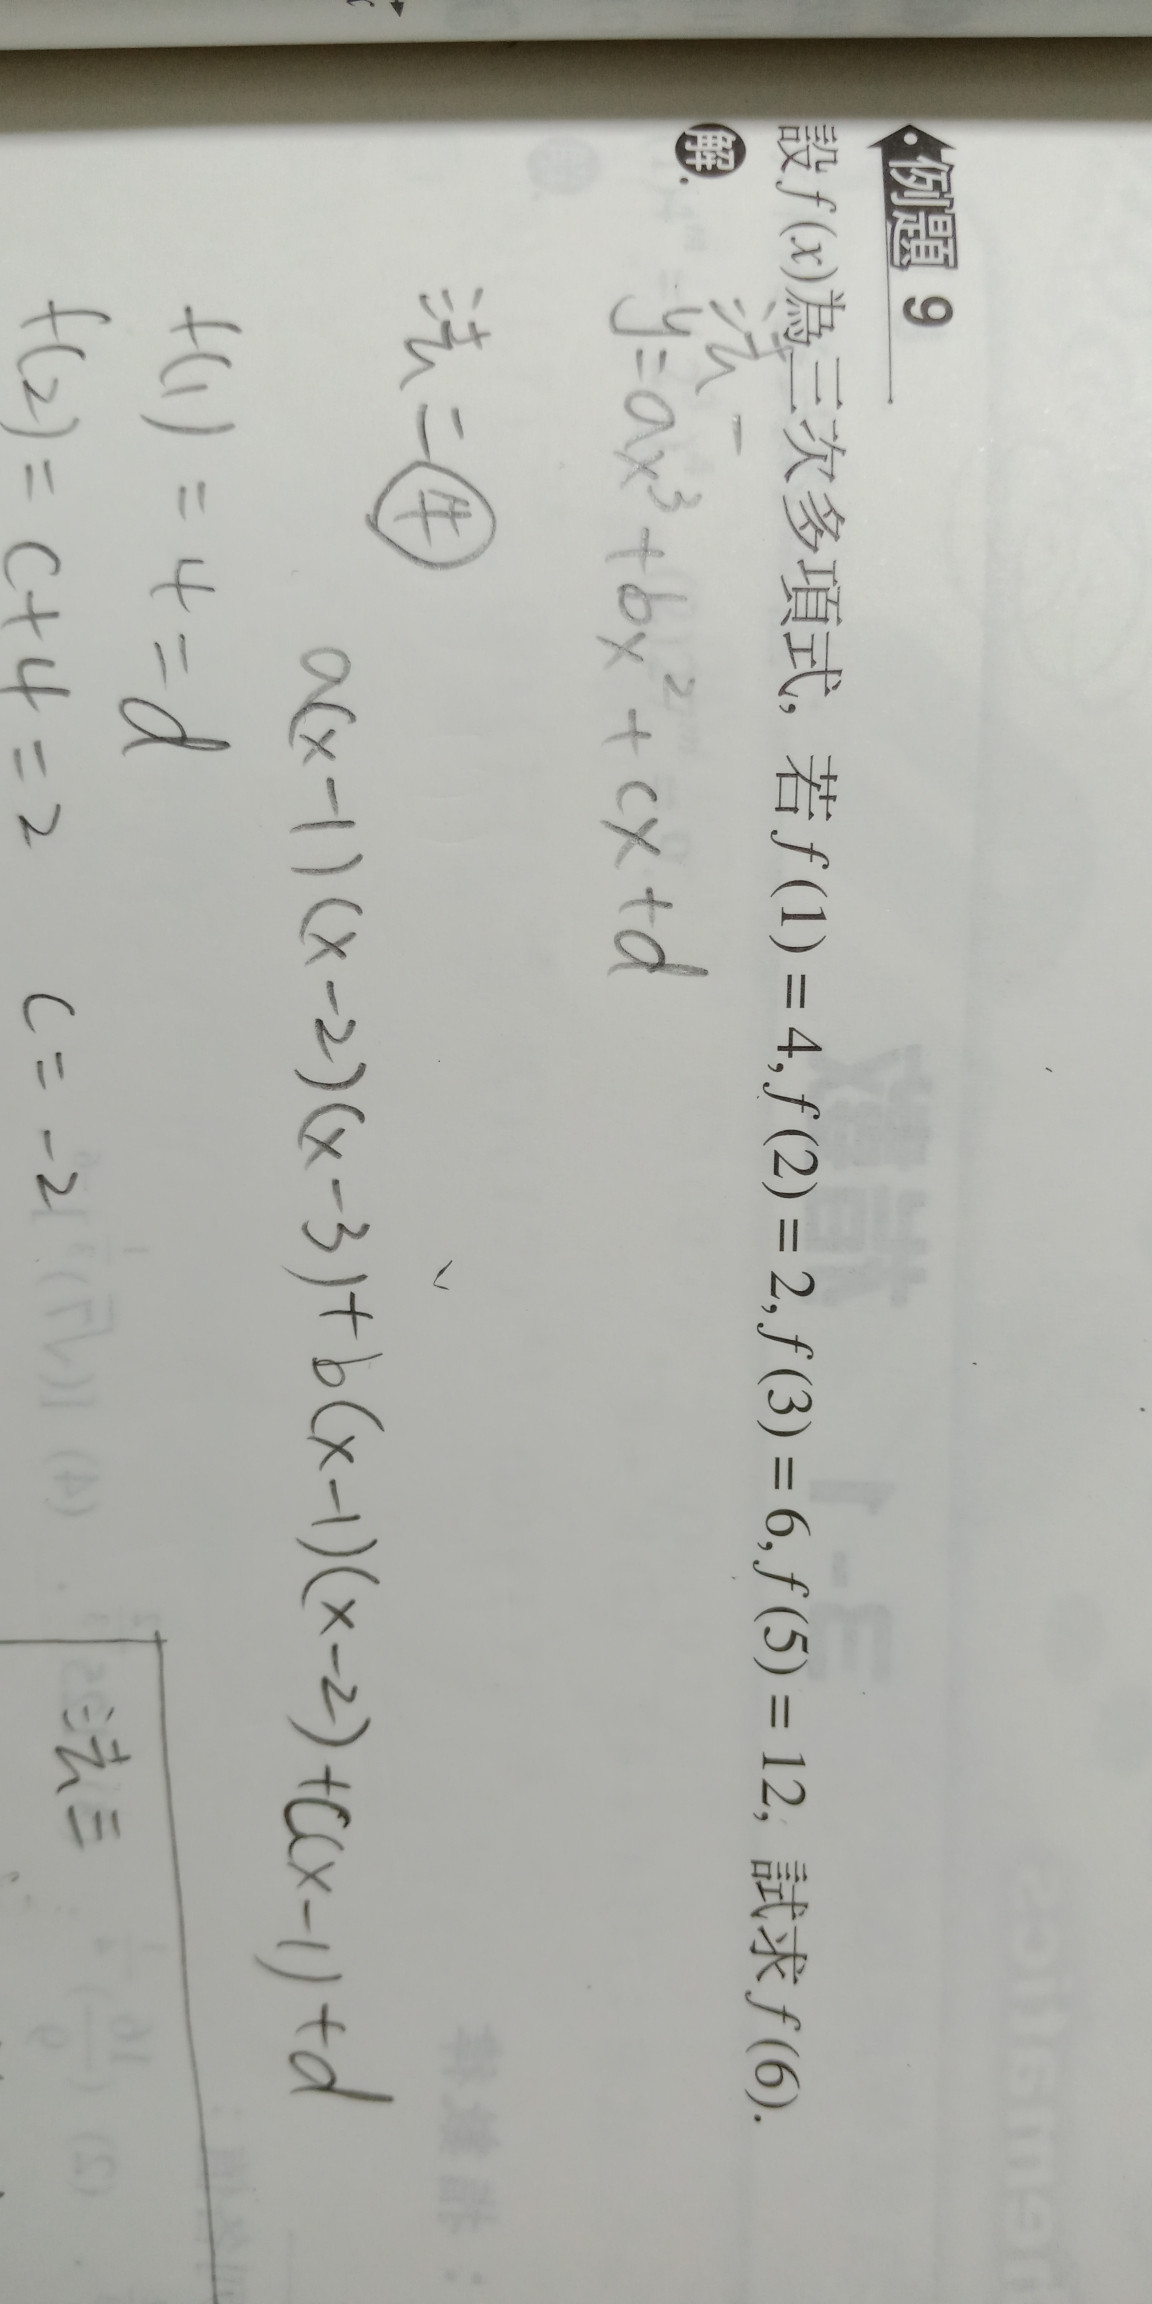 例題 9
設 f(x) 為三次多項式, 若 f(1) = 4, f(2) = 2, f(3) = 6, f(5) = 12, 試求 f(6).
解.
法一
y = ax³ + bx² + cx + d
法二 牛
a(x-1)(x-2)(x-3) + b(x-1)(x-2) + c(x-1) + d
f(1) = 4 = d
f(2) = c + 4 = 2 c = -2
法三